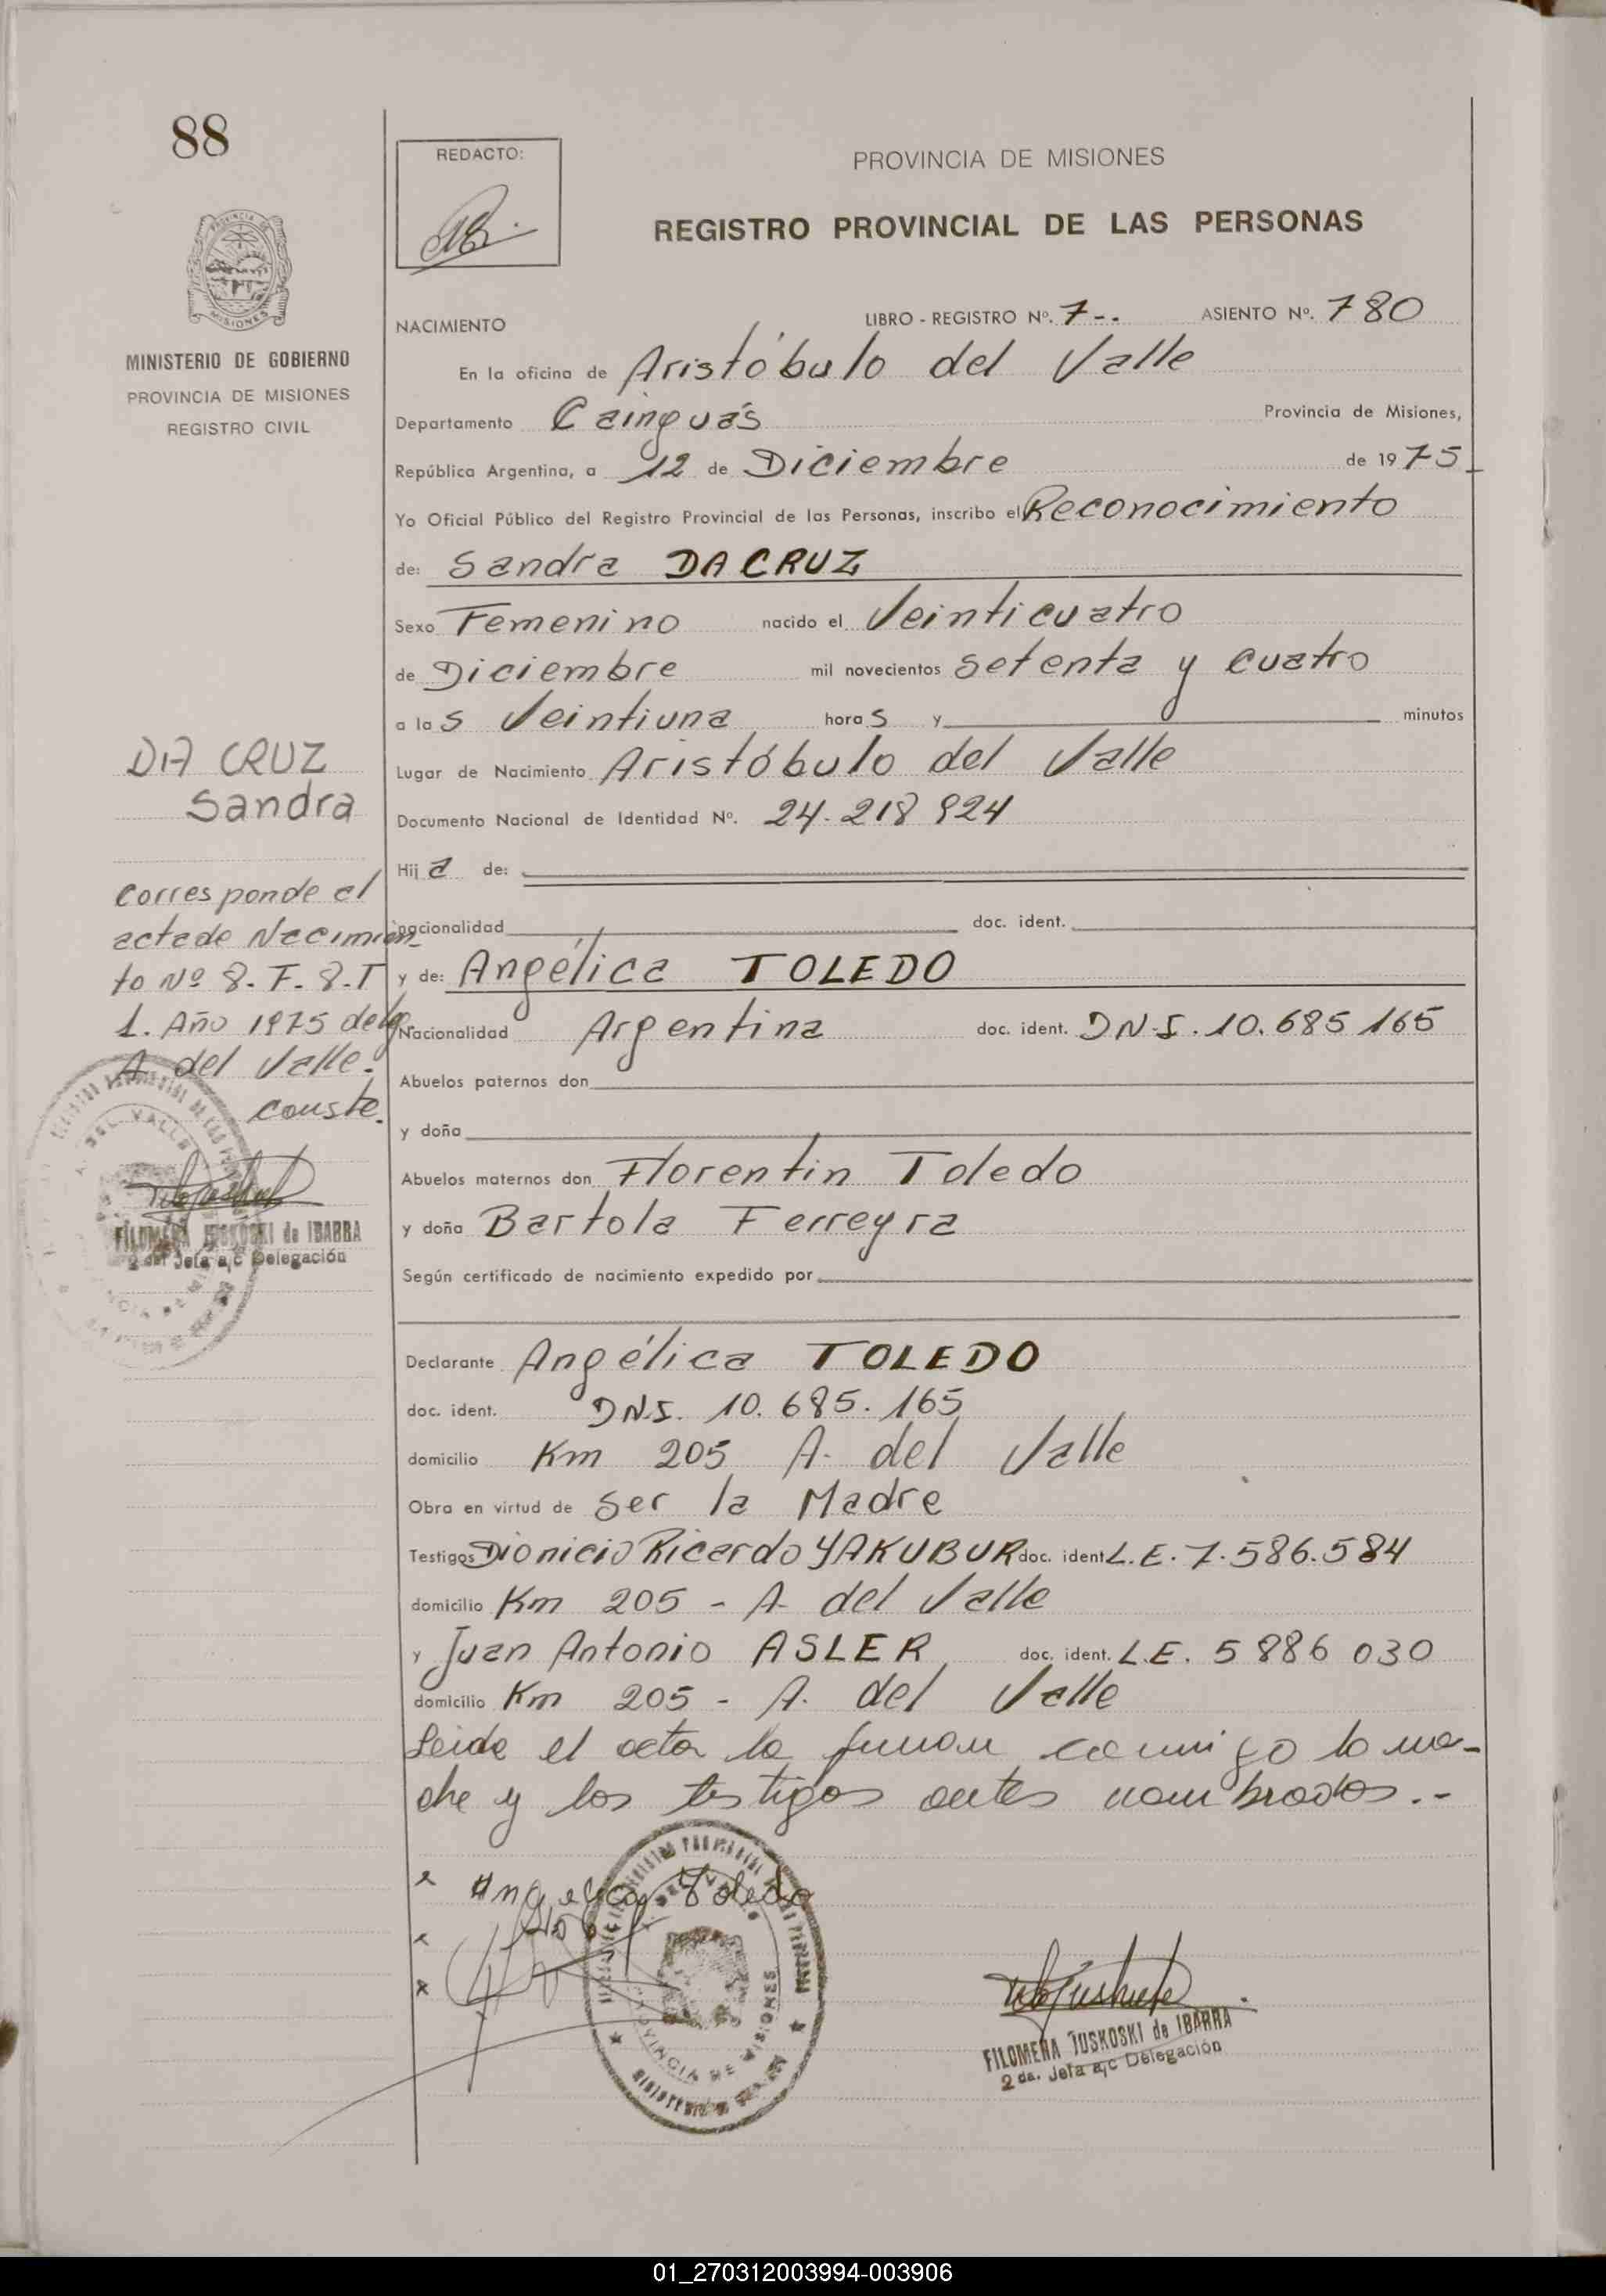 88
REDACTO:
PROVINCIA DE MISIONES
REGISTRO PROVINCIAL DE LAS PERSONAS
MINISTERIO DE GOBIERNO
PROVINCIA DE MISIONES
REGISTRO CIVIL
NACIMIENTO LIBRO - REGISTRO Nº. 7-- ASIENTO Nº. 780
En la oficina de Aristóbulo del Valle
Departamento Cainguás Provincia de Misiones,
República Argentina, a 12 de Diciembre de 1975
Yo Oficial Público del Registro Provincial de las Personas, inscribo el Reconocimiento
de: Sandra DA CRUZ
Sexo Femenino nacido el Veinticuatro
de Diciembre mil novecientos setenta y cuatro
a las Veintiuna horas y minutos
Lugar de Nacimiento Aristóbulo del Valle
Documento Nacional de Identidad Nº. 24.218 924
Hija de:
nacionalidad doc. ident.
y de: Angélica TOLEDO
Nacionalidad Argentina doc. ident. DN.I. 10.685 165
Abuelos paternos don
y doña
Abuelos maternos don Florentin Toledo
y doña Bartola Ferreyra
Según certificado de nacimiento expedido por
Declarante Angélica TOLEDO
doc. ident. DN.I. 10.685.165
domicilio Km 205 A. del Valle
Obra en virtud de ser la Madre
Testigos Dionicio Ricardo YAKUBUR doc. ident L.E. 7.586.584
domicilio Km 205 - A. del Valle
y Juan Antonio ASLER doc. ident. L.E. 5886 030
domicilio Km 205 - A. del Valle
Leida el acta la firman conmigo la ma-
dre y los testigos antes nombrados.-
Angelica Toledo
FILOMENA JUSKOSKI de IBARRA
2 da. Jefa a/c Delegación
DA CRUZ
Sandra
Corresponde al
acta de Nacimien-
to Nº 8. F. 8. T
1. Año 1975 deleg.
A del Valle.
conste.
FILOMENA JUSKOSKI de IBARRA
2 da. Jefa a/c Delegación
PROVINCIA DE MISIONES
01_270312003994-003906